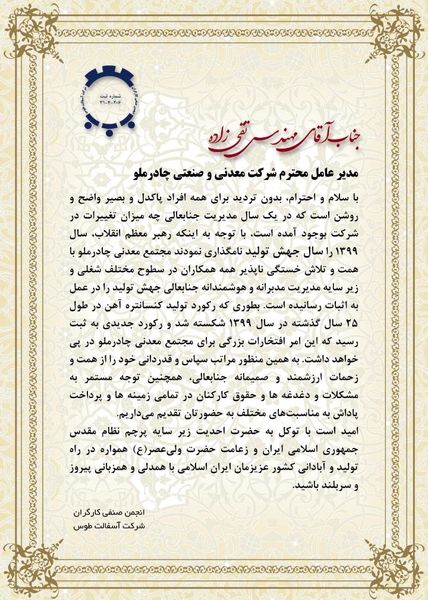 شماره ثبت
۳۶-۴-۲۰۶
جناب آقای مهندس تقی زاده
مدیر عامل محترم شرکت معدنی و صنعتی چادرملو
با سلام و احترام، بدون تردید برای همه افراد پاکدل و بصیر واضح و
روشن است که در یک سال مدیریت جنابعالی چه میزان تغییرات در
شرکت بوجود آمده است. با توجه به اینکه رهبر معظم انقلاب، سال
۱۳۹۹ را سال جهش تولید نامگذاری نمودند مجتمع معدنی چادرملو با
همت و تلاش خستگی ناپذیر همه همکاران در سطوح مختلف شغلی و
زیر سایه مدیریت مدبرانه و هوشمندانه جنابعالی جهش تولید را در عمل
به اثبات رسانیده است. بطوری که رکورد تولید کنسانتره آهن در طول
۲۵ سال گذشته در سال ۱۳۹۹ شکسته شد و رکورد جدیدی به ثبت
رسید که این امر افتخارات بزرگی برای مجتمع معدنی چادرملو در پی
خواهد داشت. به همین منظور مراتب سپاس و قدردانی خود را از همت و
زحمات ارزشمند و صمیمانه جنابعالی، همچنین توجه مستمر به
مشکلات و دغدغه ها و حقوق کارکنان در تمامی زمینه ها و پرداخت
پاداش به مناسبت‌های مختلف به حضورتان تقدیم می‌داریم.
امید است با توکل به حضرت احدیت زیر سایه پرچم نظام مقدس
جمهوری اسلامی ایران و زعامت حضرت ولی‌عصر(ع) همواره در راه
تولید و آبادانی کشور عزیزمان ایران اسلامی با همدلی و همزبانی پیروز
و سربلند باشید.
انجمن صنفی کارگران
شرکت آسفالت طوس